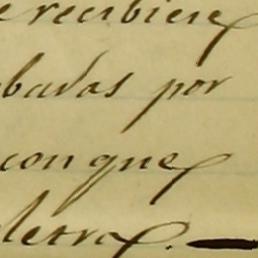 e recibiere
badas por
con que
letra.